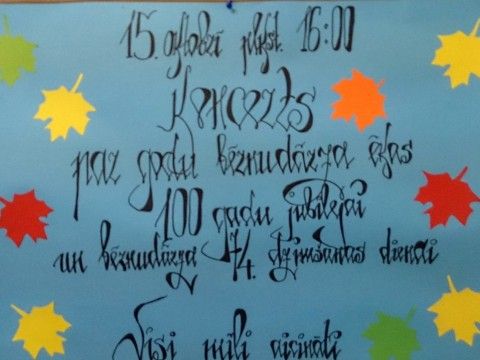 15. oktobrī plkst. 16:00
Koncerts
par godu bērnudārza ēkas
100 gadu jubilejai
un bērnudārza 74. dzimšanas dienai
Visi mīļi aicināti